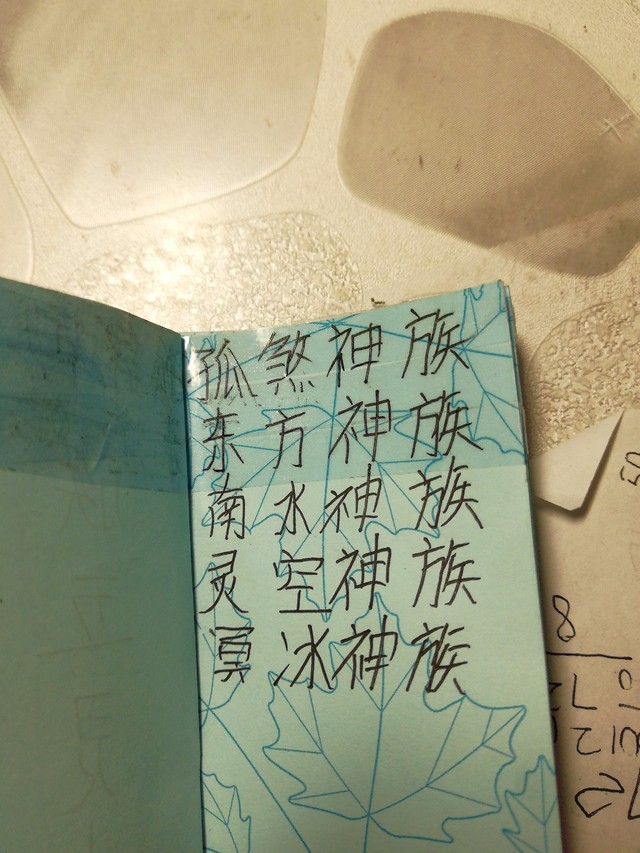 孤煞神族
东方神族
南水神族
灵空神族
冥冰神族
8